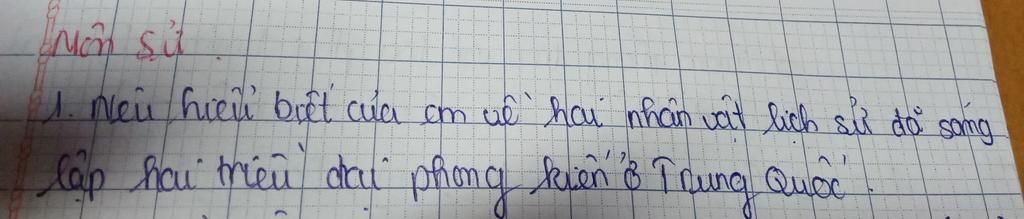 Môn sử
1. Nêu hiểu biết của em về hai nhân vật lịch sử đã sáng
lập hai triều đại phong kiến ở Trung Quốc.